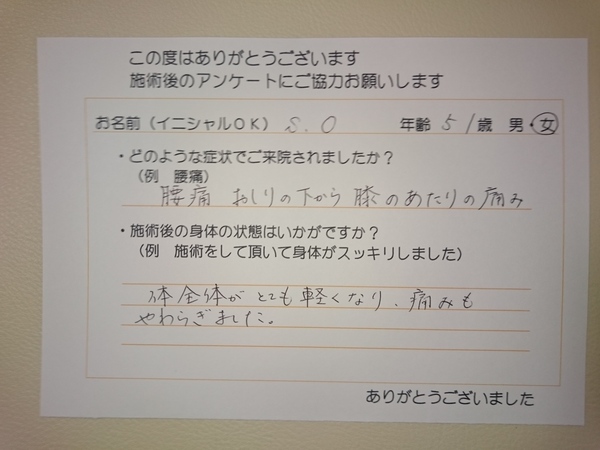 この度はありがとうございます
施術後のアンケートにご協力お願いします
お名前（イニシャルＯＫ） S.O 年齢 51 歳 男・女
・どのような症状でご来院されましたか？
（例 腰痛）
腰痛 おしりの下から膝のあたりの痛み
・施術後の身体の状態はいかがですか？
（例 施術をして頂いて身体がスッキリしました）
体全体がとても軽くなり、痛みも
やわらぎました。
ありがとうございました